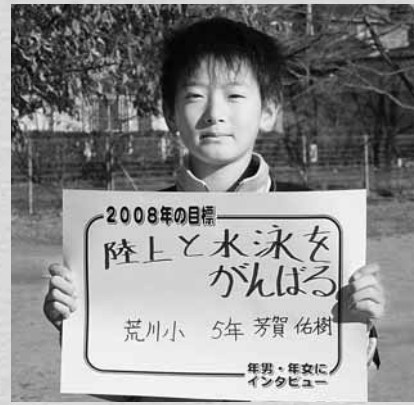 2008年の目標
陸上と水泳を
がんばる
荒川小 5年 芳賀佑樹
年男・年女に
インタビュー